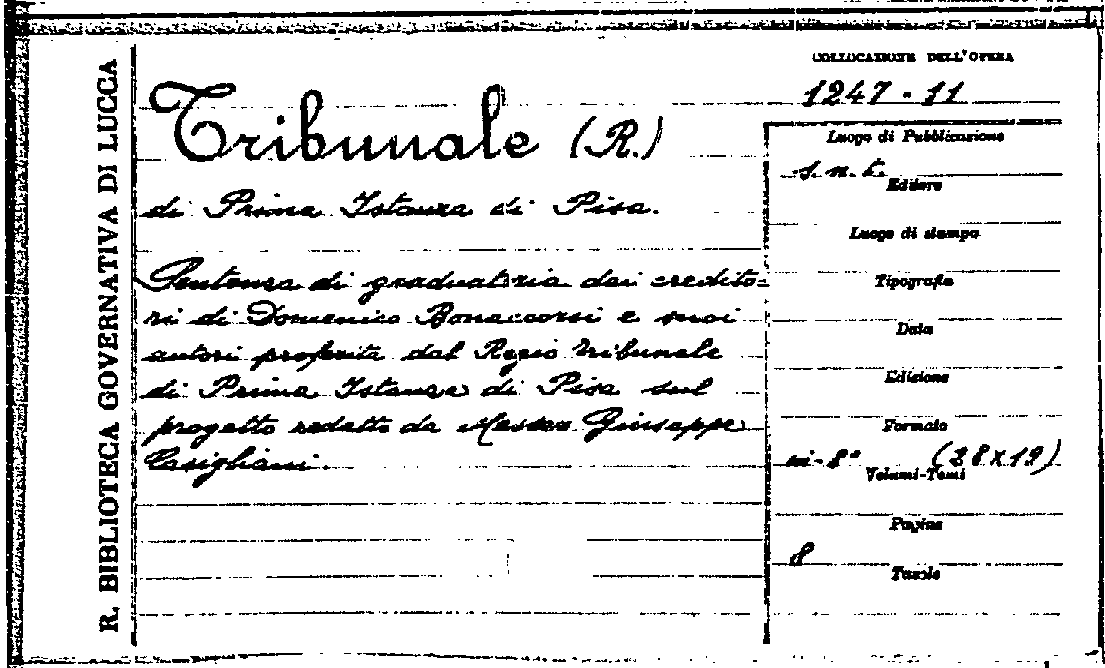 R. BIBLIOTECA GOVERNATIVA DI LUCCA
COLLOCAZIONE DELL'OPERA
1247 - 11
Tribunale (R.)
di Prima Istanza di Pisa.
Sentenza di graduatoria dei credito=
ri di Domenico Bonaccorsi e suoi
autori proferita dal Regio Tribunale
di Prima Istanza di Pisa sul
progetto redatto da Messer Giuseppe
Casigliani.
Luogo di Pubblicazione
s. n. t.
Editore
Luogo di stampa
Tipografia
Data
Edizione
Formato
in-8° (28x19)
Volumi-Tomi
Pagine
8
Tavole